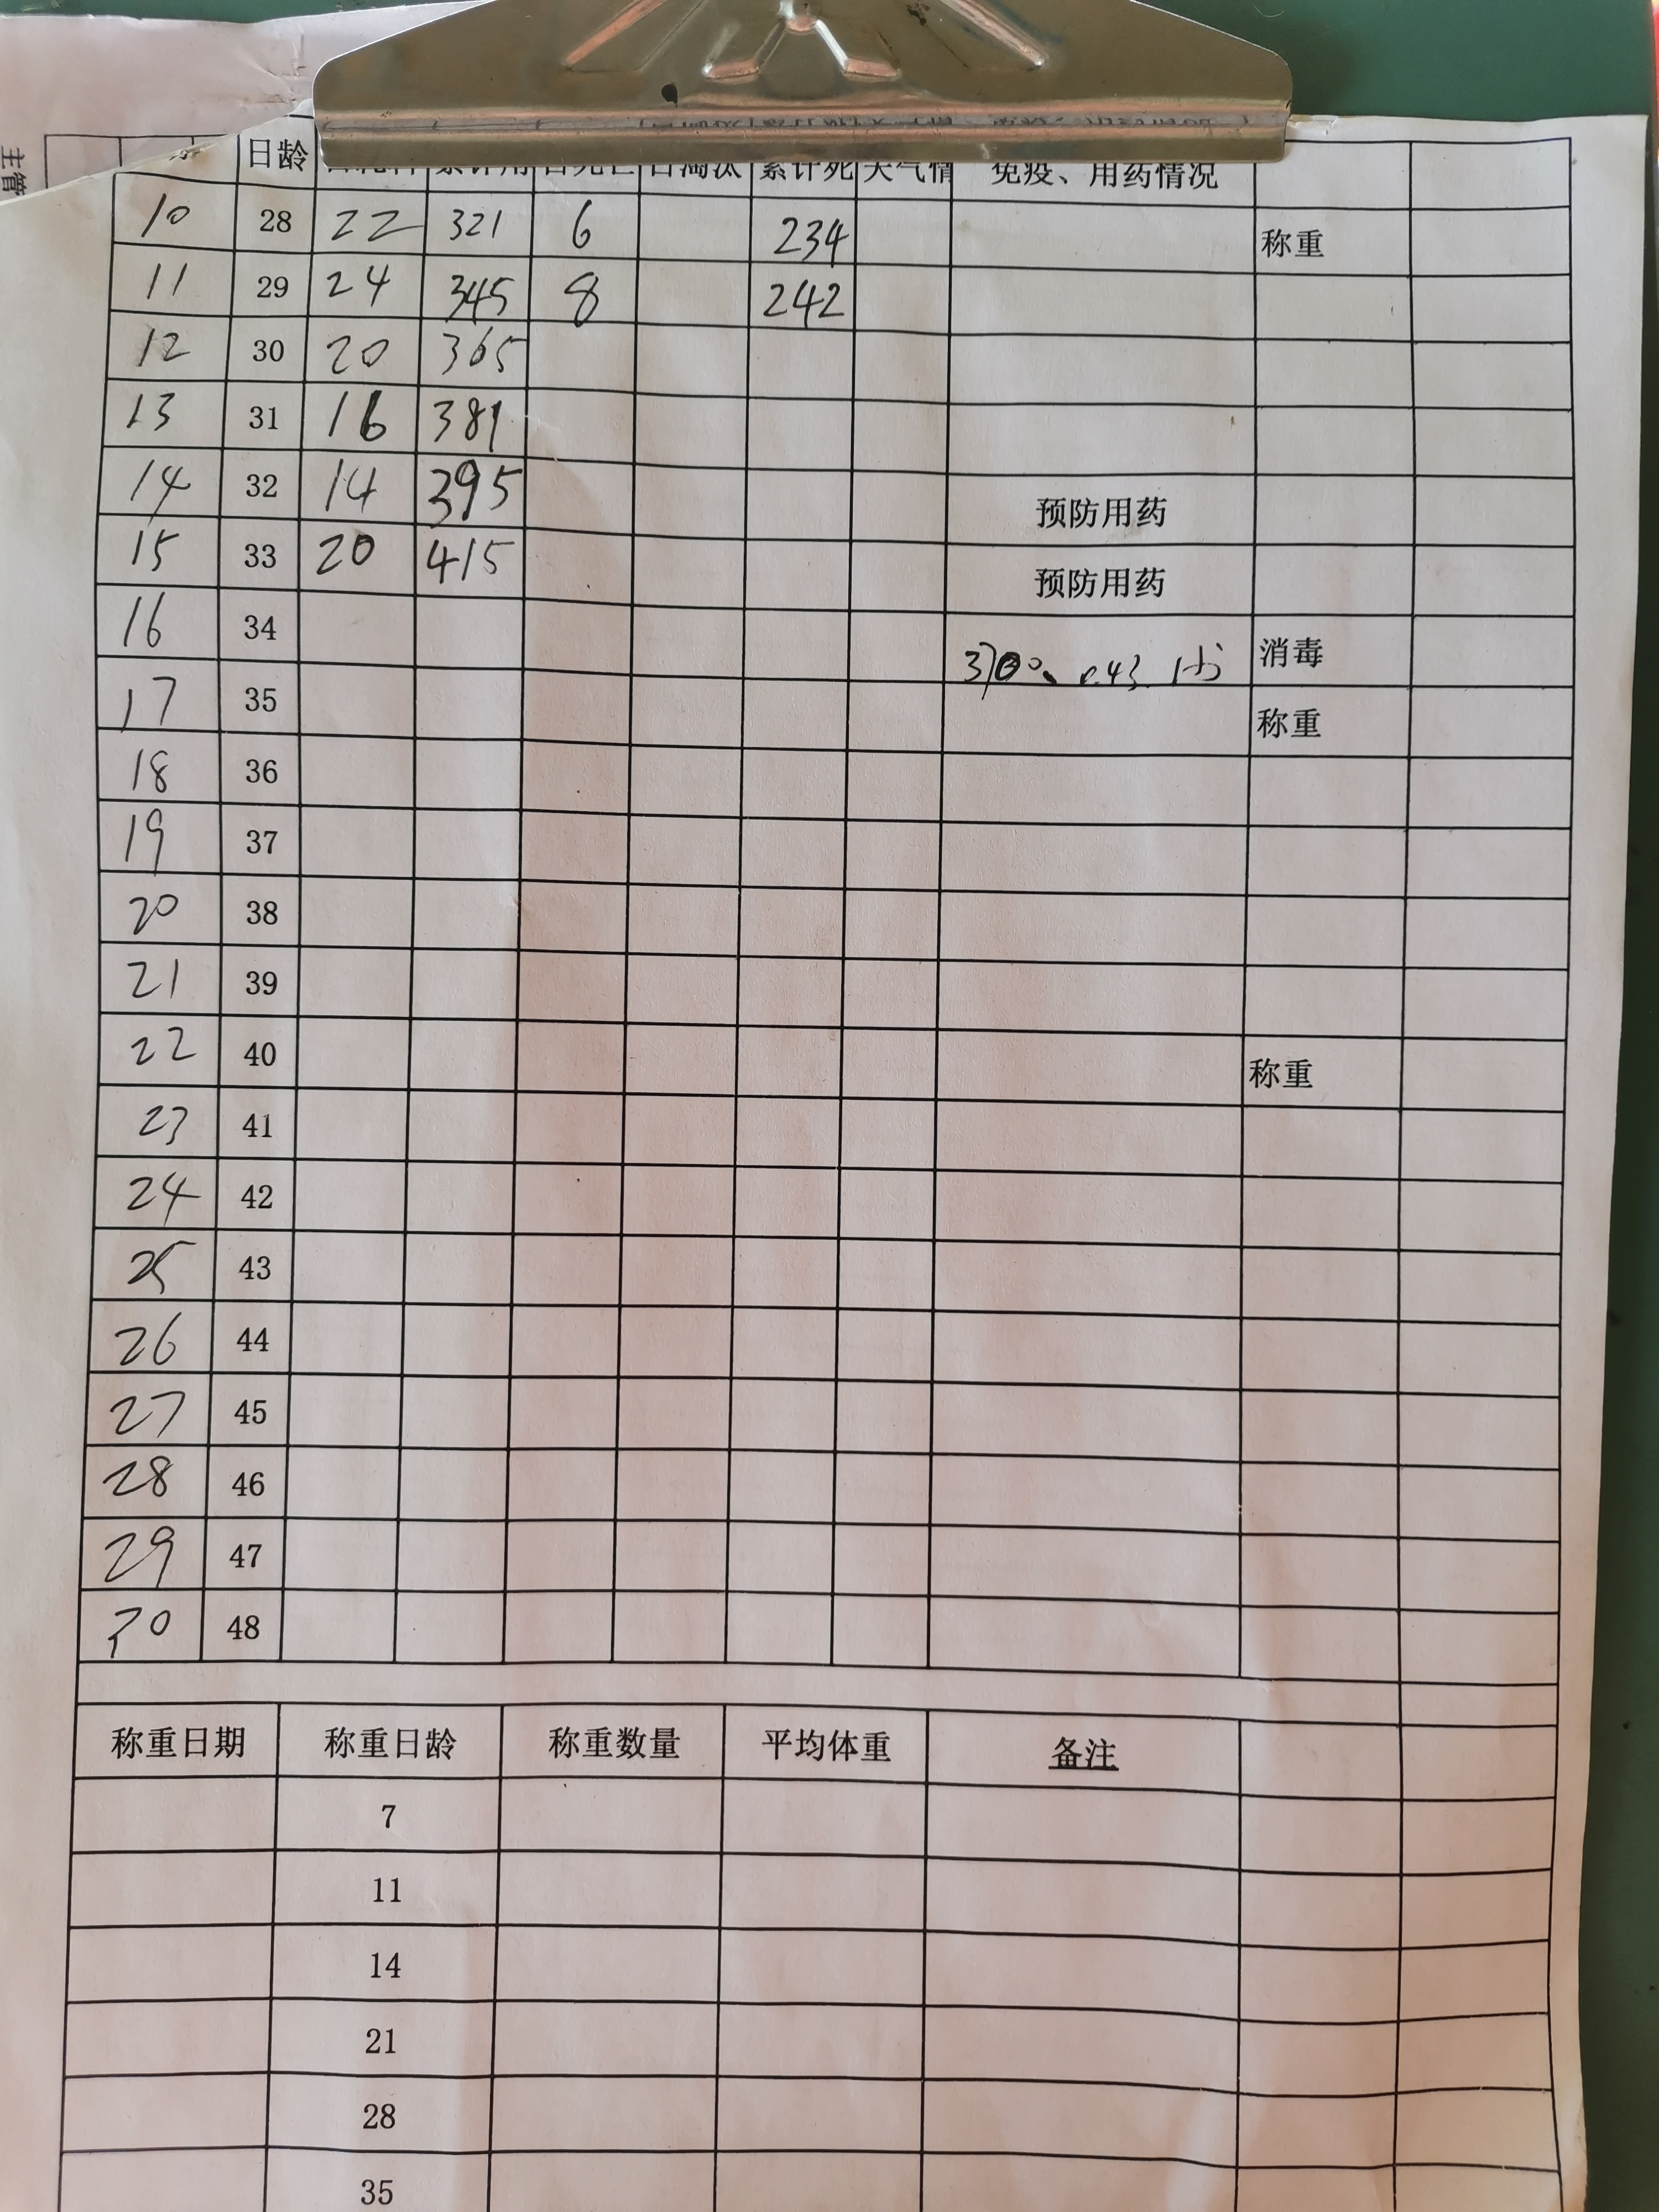 主管
日龄 累计死 天气情 免疫、用药情况
10 28 22 321 6 234 称重
11 29 24 345 8 242
12 30 20 365
13 31 16 381
14 32 14 395 预防用药
15 33 20 415 预防用药
16 34 消毒
17 35 称重
18 36
19 37
20 38
21 39
22 40 称重
23 41
24 42
25 43
26 44
27 45
28 46
29 47
30 48
称重日期 称重日龄 称重数量 平均体重 备注
7
11
14
21
28
35